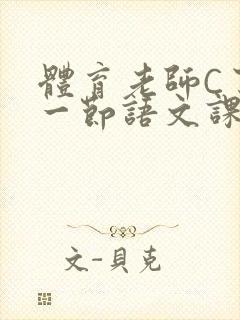 體育老師C
一節語文課
文-貝克